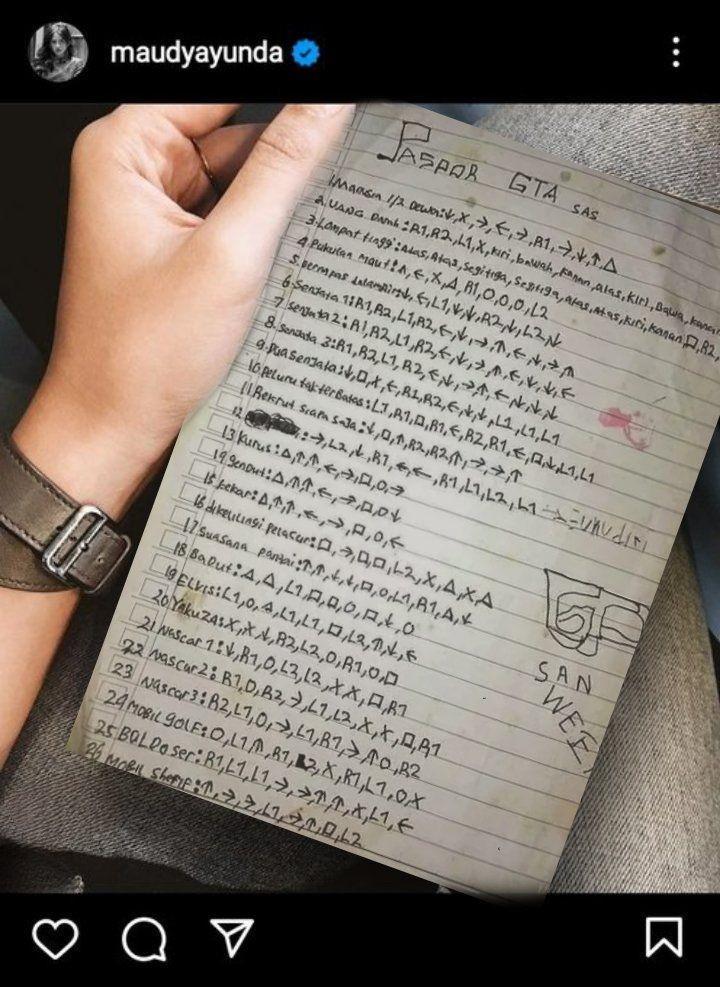 maudyayunda
PASPOR GTA SAS
1. MANSIA 1/2 Dewa: ↓, X, →, ←, →, R1, →, ↓, ↑, △
2. UANG Darah: R1, R2, L1, X, kiri, bawah, kanan, atas, kiri, Bawa, kanan
3. Lompat tinggi: Atas, Atas, Segitiga, Segitiga, atas, Atas, kiri, kanan, □, R2,
4. Pukulan maut: ↑, ←, X, △, R1, O, O, O, L2
5. bernapas dalam air: ↓, ←, L1, ↓, ↓, R2, ↓, L2, ↓
6. Senjata 1: R1, R2, L1, R2, ←, ↓, →, ↑, ←, ↓, →, ↑
7. Senjata 2: R1, R2, L1, R2, ←, ↓, →, ↑, ←, ↓, ↓, ←
8. Senjata 3: R1, R2, L1, R2, ←, ↓, →, ↑, ←, ↓, ↓, ↓
9. Dua senjata: ↓, □, X, ←, R1, R2, ←, ↓, ↓, L1, L1, L1
10. Peluru tak terbatas: L1, R1, □, R1, ←, R2, R1, ←, □, ↓, L1, L1
11. Rekrut siapa saja: ↓, □, ↑, R2, R2, ↑, →, →, ↑
12. : →, L2, ↓, R1, ←, ←, R1, L1, L2, L1 →
13 Kurus: △, ↑, ↑, ←, →, □, O, →
14 Gendut: △, ↑, ↑, ←, →, □, O, ↓
15 kekar: △, ↑, ↑, ←, →, □, O, ←
16 dikelilingi pelacur: □, →, □, □, L2, X, △, X, △
17 Suasana pantai: ↑, ↑, ↓, ↓, □, O, L1, R1, △, ↓
18 Badut: △, △, L1, □, □, O, □, ↓, O
19 ELVIS: L1, O, △, L1, L1, □, L2, ↑, ↓, ←
20 Yakuza: X, X, ↓, R2, L2, O, R1, O, □
21 Nascar 1: ↓, R1, O, L2, L2, X, X, □, R1
22 Nascar 2: R1, O, R2, →, L1, L2, X, X, □, R1
23 Nascar 3: R2, L1, O, →, L1, R1, →, ↑, O, R2
24 MOBIL GOLF: O, L1, ↑, R1, L2, X, R1, L1, O, X
25 BOLDOser: R1, L1, L1, →, →, ↑, ↑, X, L1, ←
26 MOBIL Sherif: ↑, →, →, L1, →, ↑, □, L2
SAN
WEE